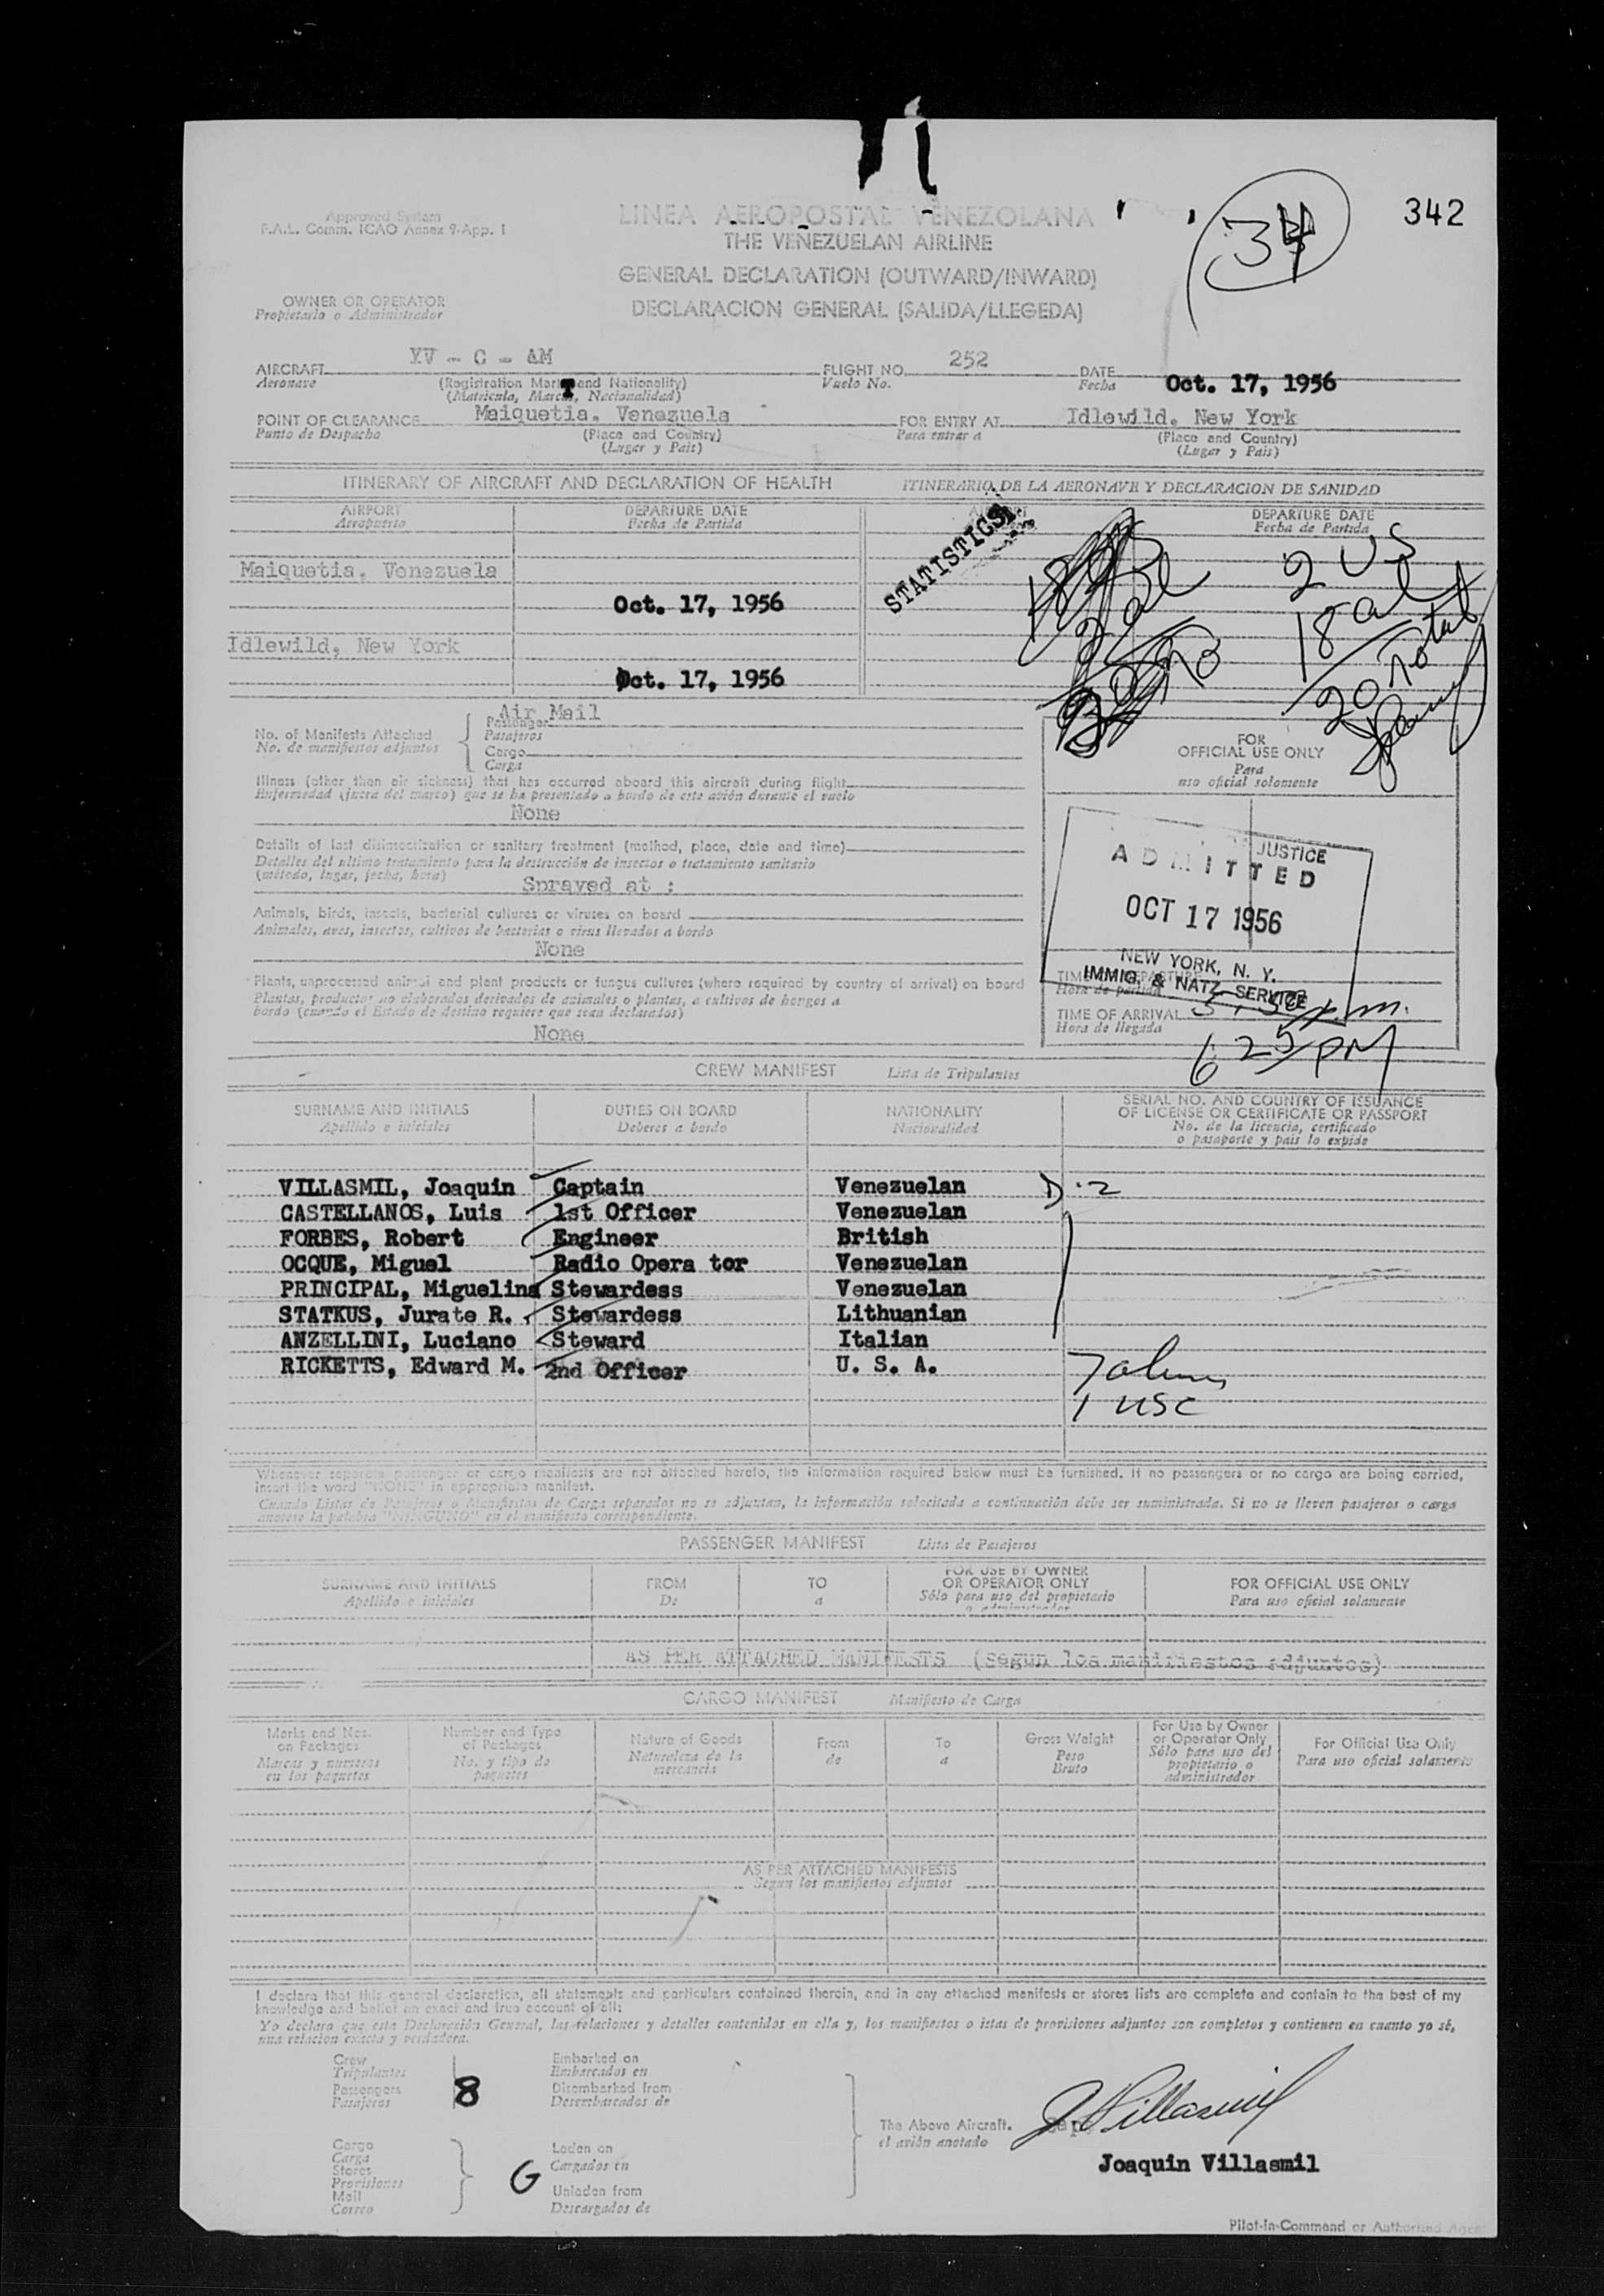 342
34
Approved System
F.A.L. Comm. ICAO Annex 9-App. 1
LINEA AEROPOSTAL VENEZOLANA
THE VENEZUELAN AIRLINE
GENERAL DECLARATION (OUTWARD/INWARD)
DECLARACION GENERAL (SALIDA/LLEGEDA)
OWNER OR OPERATOR
Propietario o Administrador
AIRCRAFT YV - C - AM FLIGHT NO. 252 DATE Oct. 17, 1956
Aeronave (Registration Mark and Nationality) Vuelo No. Fecha
(Matricula, Marca, Nacionalidad)
POINT OF CLEARANCE Maiquetia, Venezuela FOR ENTRY AT Idlewild, New York
Punto de Despacho (Place and Country) Para entrar a (Place and Country)
(Lugar y Pais) (Lugar y Pais)
ITINERARY OF AIRCRAFT AND DECLARATION OF HEALTH ITINERARIO DE LA AERONAVE Y DECLARACION DE SANIDAD
AIRPORT DEPARTURE DATE DEPARTURE DATE
Aeropuerto Fecha de Partida Fecha de Partida
STATISTICS
2 US
Maiquetia, Venezuela
18 al
Oct. 17, 1956
Idlewild, New York
20 Total
Oct. 17, 1956
Air Mail
No. of Manifests Attached Passenger
No. de manifiestos adjuntos Pasajeros
Cargo
Carga
FOR
OFFICIAL USE ONLY
Para
uso oficial solamente
Illness (other than air sickness) that has occurred aboard this aircraft during flight
Enfermedad (fuera del mareo) que se ha presentado a bordo de este avión durante el vuelo
None
Details of last disinsectization or sanitary treatment (method, place, date and time)
Detalles del ultimo tratamiento para la destrucción de insectos o tratamiento sanitario
(método, lugar, fecha, hora)
Sprayed at :
JUSTICE
ADMITTED
OCT 17 1956
NEW YORK, N. Y.
IMMIG. & NATZ. SERVICE
Animals, birds, insects, bacterial cultures or viruses on board
Animales, aves, insectos, cultivos de bacterias o virus llevados a bordo
None
Plants, unprocessed animal and plant products or fungus cultures (where required by country of arrival) on board
Plantas, productos no elaborados derivados de animales o plantas, a cultivos de hongos a
bordo (cuando el Estado de destino requiere que sean declarados)
None
TIME OF DEPARTURE
Hora de partida
TIME OF ARRIVAL
Hora de llegada
6 25 PM
CREW MANIFEST Lista de Tripulantes
SURNAME AND INITIALS DUTIES ON BOARD NATIONALITY SERIAL NO. AND COUNTRY OF ISSUANCE
Apellido e iniciales Deberes a bordo Nacionalidad OF LICENSE OR CERTIFICATE OR PASSPORT
No. de la licencia, certificado
o pasaporte y pais lo expide
VILLASMIL, Joaquin Captain Venezuelan D-2
CASTELLANOS, Luis 1st Officer Venezuelan
FORBES, Robert Engineer British
OCQUE, Miguel Radio Opera tor Venezuelan
PRINCIPAL, Miguelina Stewardess Venezuelan
STATKUS, Jurate R. Stewardess Lithuanian
ANZELLINI, Luciano Steward Italian
RICKETTS, Edward M. 2nd Officer U. S. A.
7 aliens
1 USC
Whenever separate passenger or cargo manifests are not attached hereto, the information required below must be furnished. If no passengers or no cargo are being carried,
insert the word "NONE" in appropriate manifest.
Cuando Listas de Pasajeros o Manifiestos de Carga separados no se adjuntan, la información solocitada a continuación debe ser suministrada. Si no se lleven pasajeros o carga
anotese la palabra "NINGUNO" en el manifiesto correspondiente.
PASSENGER MANIFEST Lista de Pasajeros
SURNAME AND INITIALS FROM TO FOR USE BY OWNER FOR OFFICIAL USE ONLY
Apellido e iniciales De a OR OPERATOR ONLY Para uso oficial solamente
Sólo para uso del propietario
o administrador
AS PER ATTACHED MANIFESTS (segun los manifiestos adjuntos)
CARGO MANIFEST Manifiesto de Carga
Marks and Nos. on Packages Number and Type of Packages Nature of Goods From To Gross Weight For Use by Owner or Operator Only For Official Use Only
Marcas y numeros en los paquetes No. y tipo de paquetes Naturaleza de la mercancia de a Peso Bruto Sólo para uso del propietario o administrador Para uso oficial solamente
AS PER ATTACHED MANIFESTS
Segun los manifiestos adjuntos
I declare that this general declaration, all statements and particulars contained therein, and in any attached manifests or stores lists are complete and contain to the best of my
knowledge and belief an exact and true account of all:
Yo declaro que esta Declaración General, las relaciones y detalles contenidos en ella y, los manifiestos o istas de provisiones adjuntos son completos y contienen en cuanto yo sé,
una relación exacta y verdadera.
Crew Embarked on
Tripulantes Embarcados en
Passengers 8 Disembarked from
Pasajeros Desembarcados de
The Above Aircraft.
el avión anotado
J Villasmil
Joaquin Villasmil
Cargo Laden on
Carga Cargados en
Stores G
Provisiones
Mail Unladen from
Correo Descargados de
Pilot-in-Command or Authorized Agent